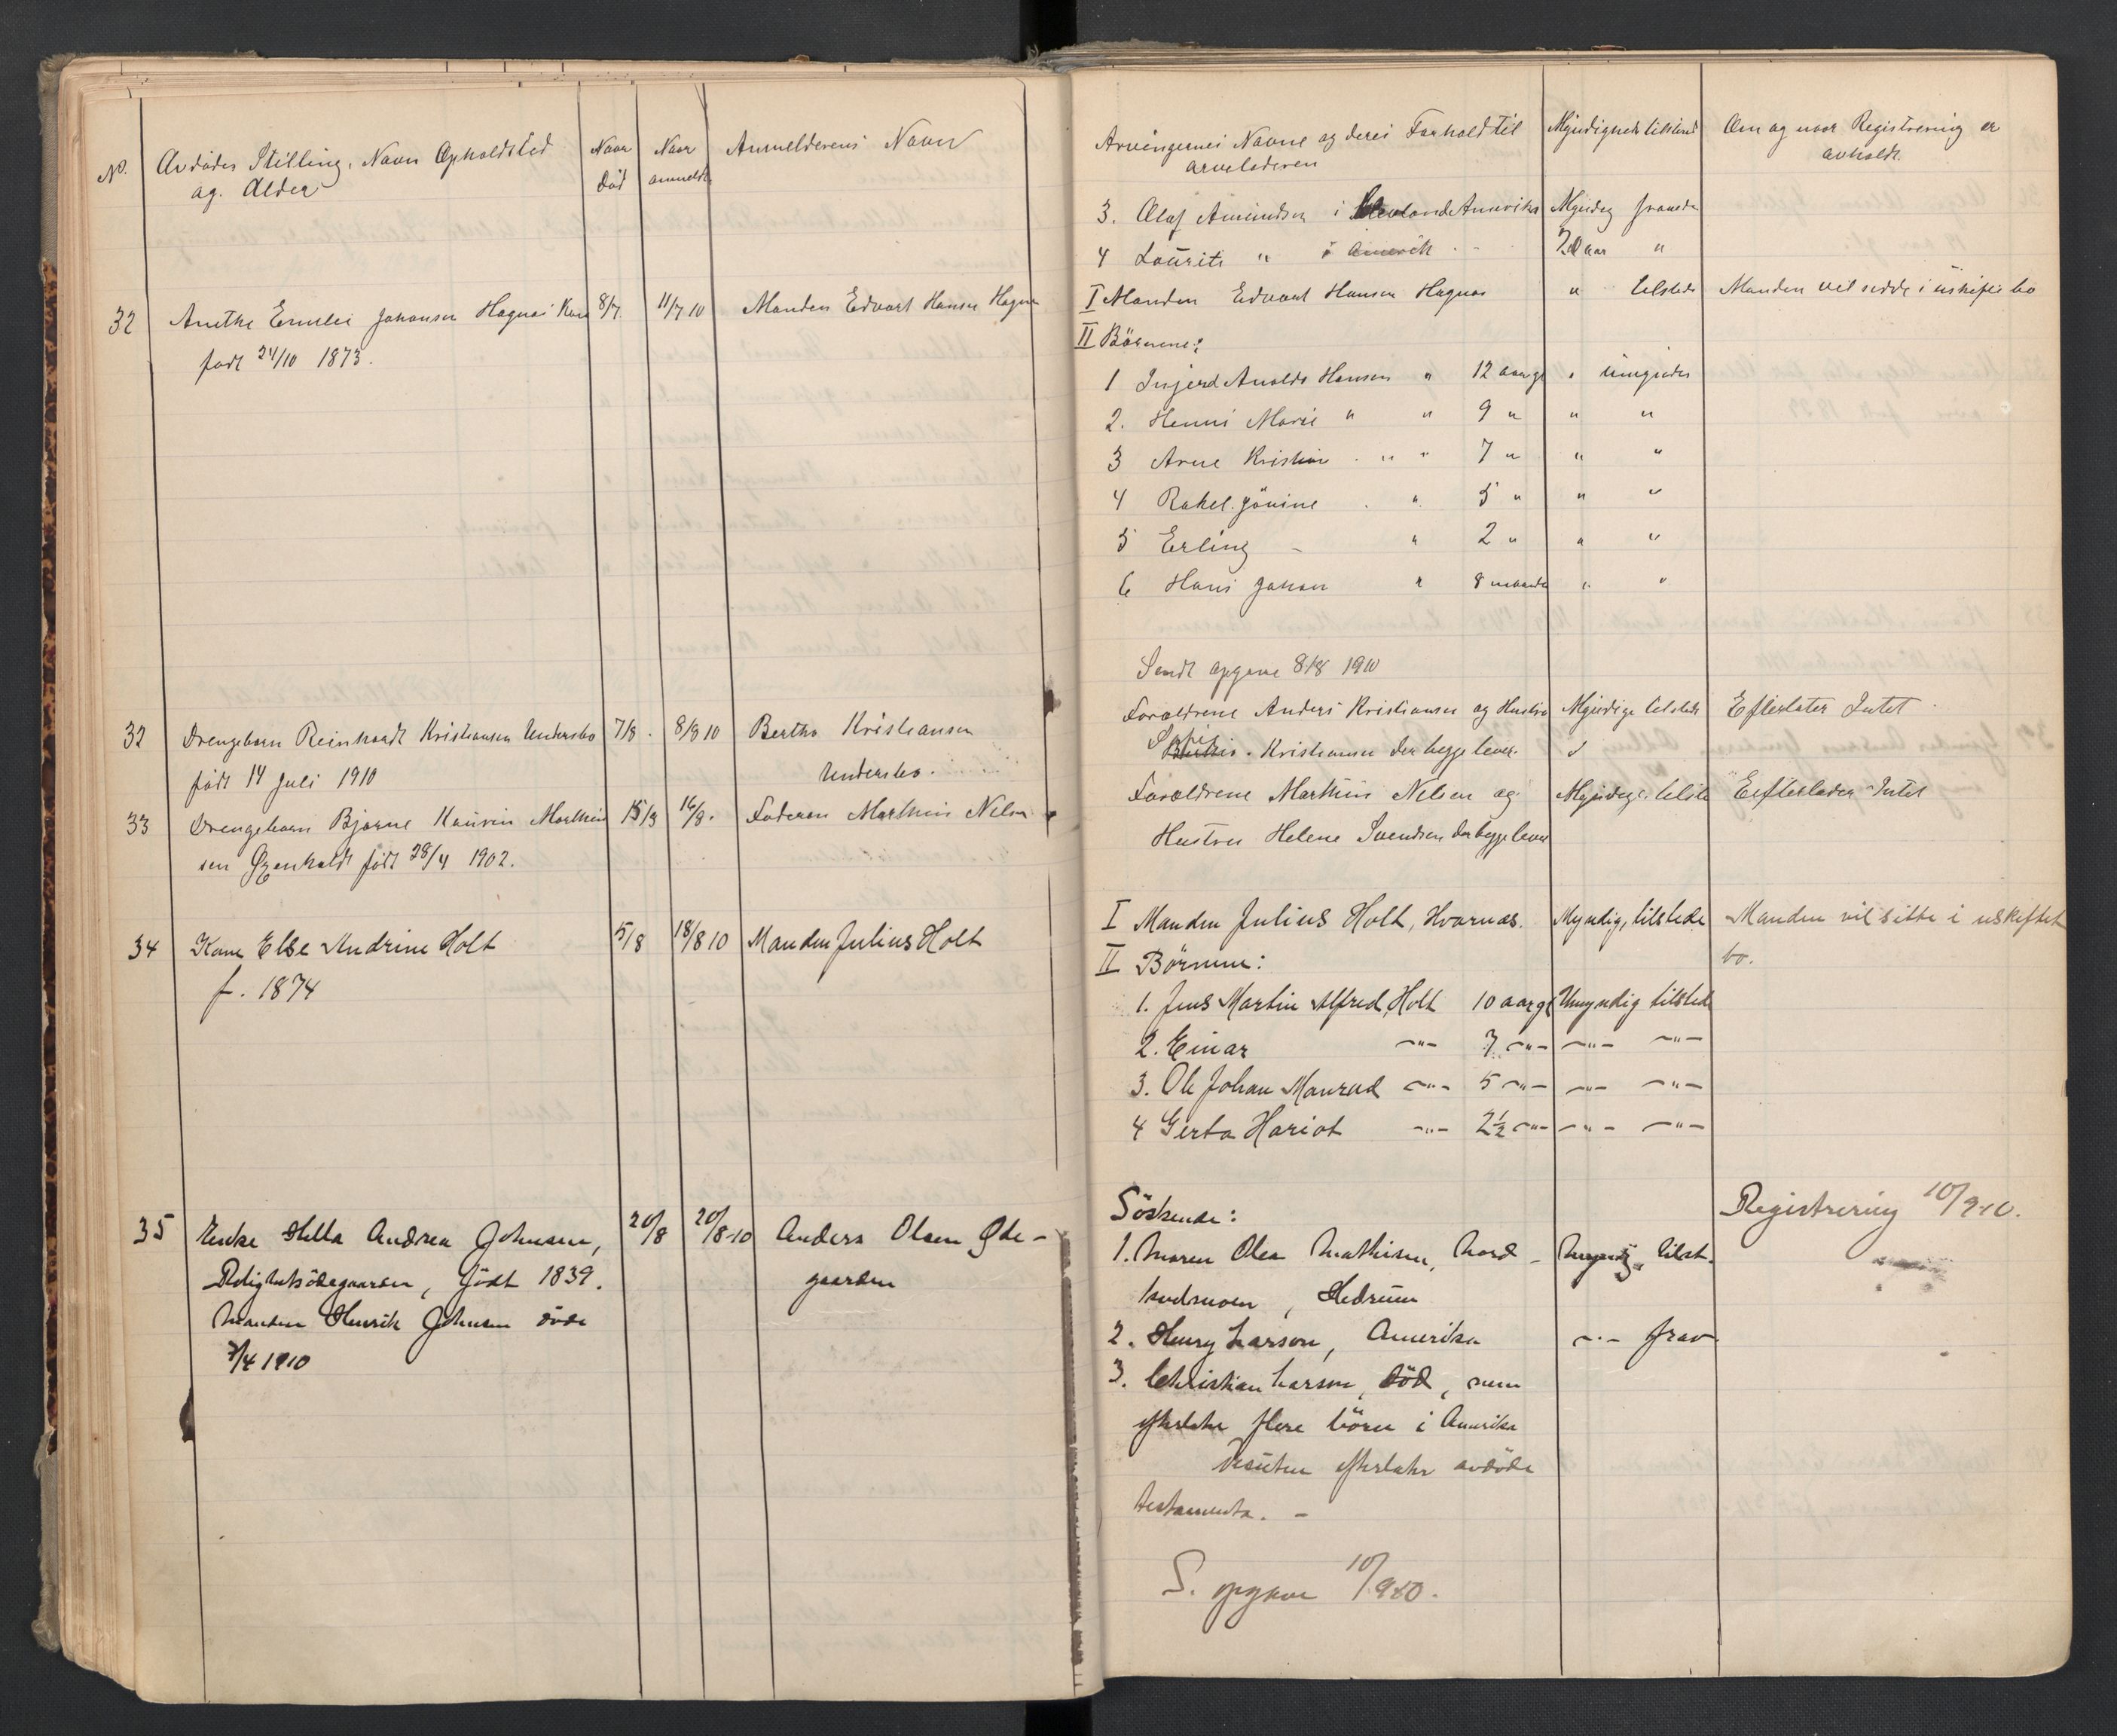 No. Avdødes Stilling, Navn Opholdsted Naar Naar Anmelderens Navn
og. Alder død anmeldt
32 Anethe Emelie Johansen Hagnæs Kone 8/7. 11/7 10 Manden Edvart Hansen Hagnæs
født 24/10 1873.
32 Drengebarn Reinhardt Kristiansen Undersbo 7/8. 8/8 10 Bertha Kristiansen
født 14 Juli 1910 Undersbo.
33 Drengebarn Bjarne Marthin 15/8 16/8. Faderen Marthin Nilsen
sen født 28/4 1902.
34 Kone Else Andrine Holt 5/8 18/8 10 Manden Julius Holt
f. 1874
35 Enke Hella Andrea Johnsen, 20/8 20/8-10 Anders Olsen Øde-
født 1839. gaarden
Manden Henrik Johnsen døde
7/4 1910
Arvingernes Navne og deres Forhold til Myndighedstilstand Om og naar Registrering er
arveladeren avholdt.
3. Olaf Amundsen i Amerika Myndig fraværende
4 Lourits " i Amerik 20 aar "
I Manden Edvart Hansen Hagnæs " tilstede Manden vil sidde i uskiftet bo
II Börnene:
1 Ingjerd Hansen " 12 aar gl " umyndig
2. Henni Marie " " 9 " " "
3 Arne Kristian . " " 7 " " "
4 Rakel Jöuine . " 5 " " "
5 Erling - " 2 " " "
6 Hans Johan " 8 maaneder " "
Sendt opgave 8/8 1910
Forældrene Anders Kristiansen og Hustru Myndige tilstede Efterlater Intet
Kristiansen der begge lever.
Forældrene Marthin Nilsen og Myndige tilste Eifterlader Intet
Hustru Helene Svendsen der begge lever
I Manden Julius Holt, Hvarnæs. Myndig, tilstede Manden vil sitte i uskiftet
II Börnene: bo.
1. Jens Martin Alfred Holt 10 aar gl Umyndig tilstede
2. Einar -"- 7 -"- -"- -"-
3. Ole Johan Manrad -"- 5 -"- -"- -"-
4 Gerta Hariot -"- 2½ -"- -"- -"-
Söskende: Registrering 10/9-10.
1. Maren Olea Mathisen, Nord- Myndig, tilst.
, Hedrum
2. Henry Larson, Amerika -"- frav
3. Christian Larson, död, som
efterlater flere börn i Amerika
Desuten efterlater avdöde
testamente. -
S. opgave 10/9 10.